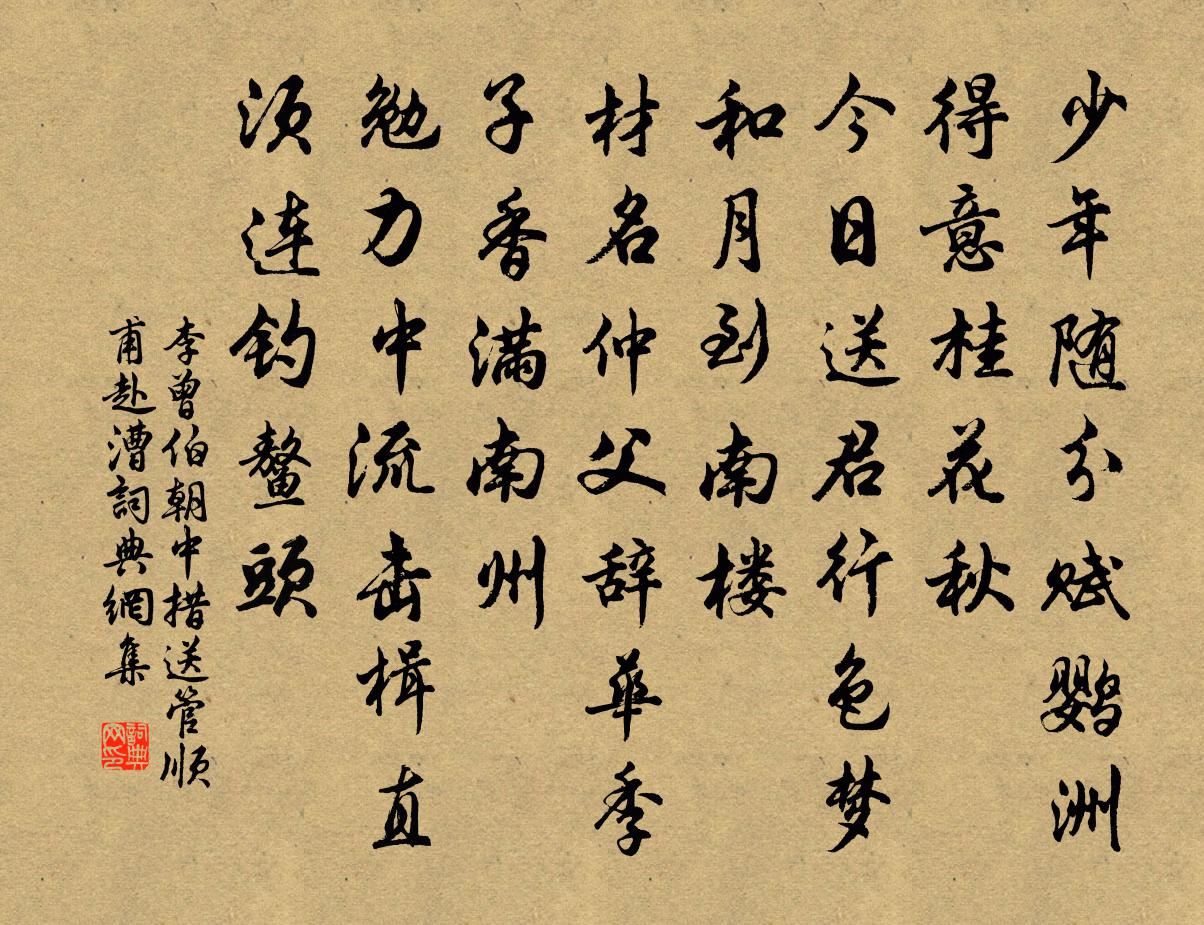 少年随分赋鹦洲
得意桂花秋
今日送君行色梦
和月到南楼
材名仲父辞华季
子香满南州
勉力中流击楫直
须连钓鳌头
李曾伯朝中措送管顺
甫赴漕詞典網集
詞典
网印